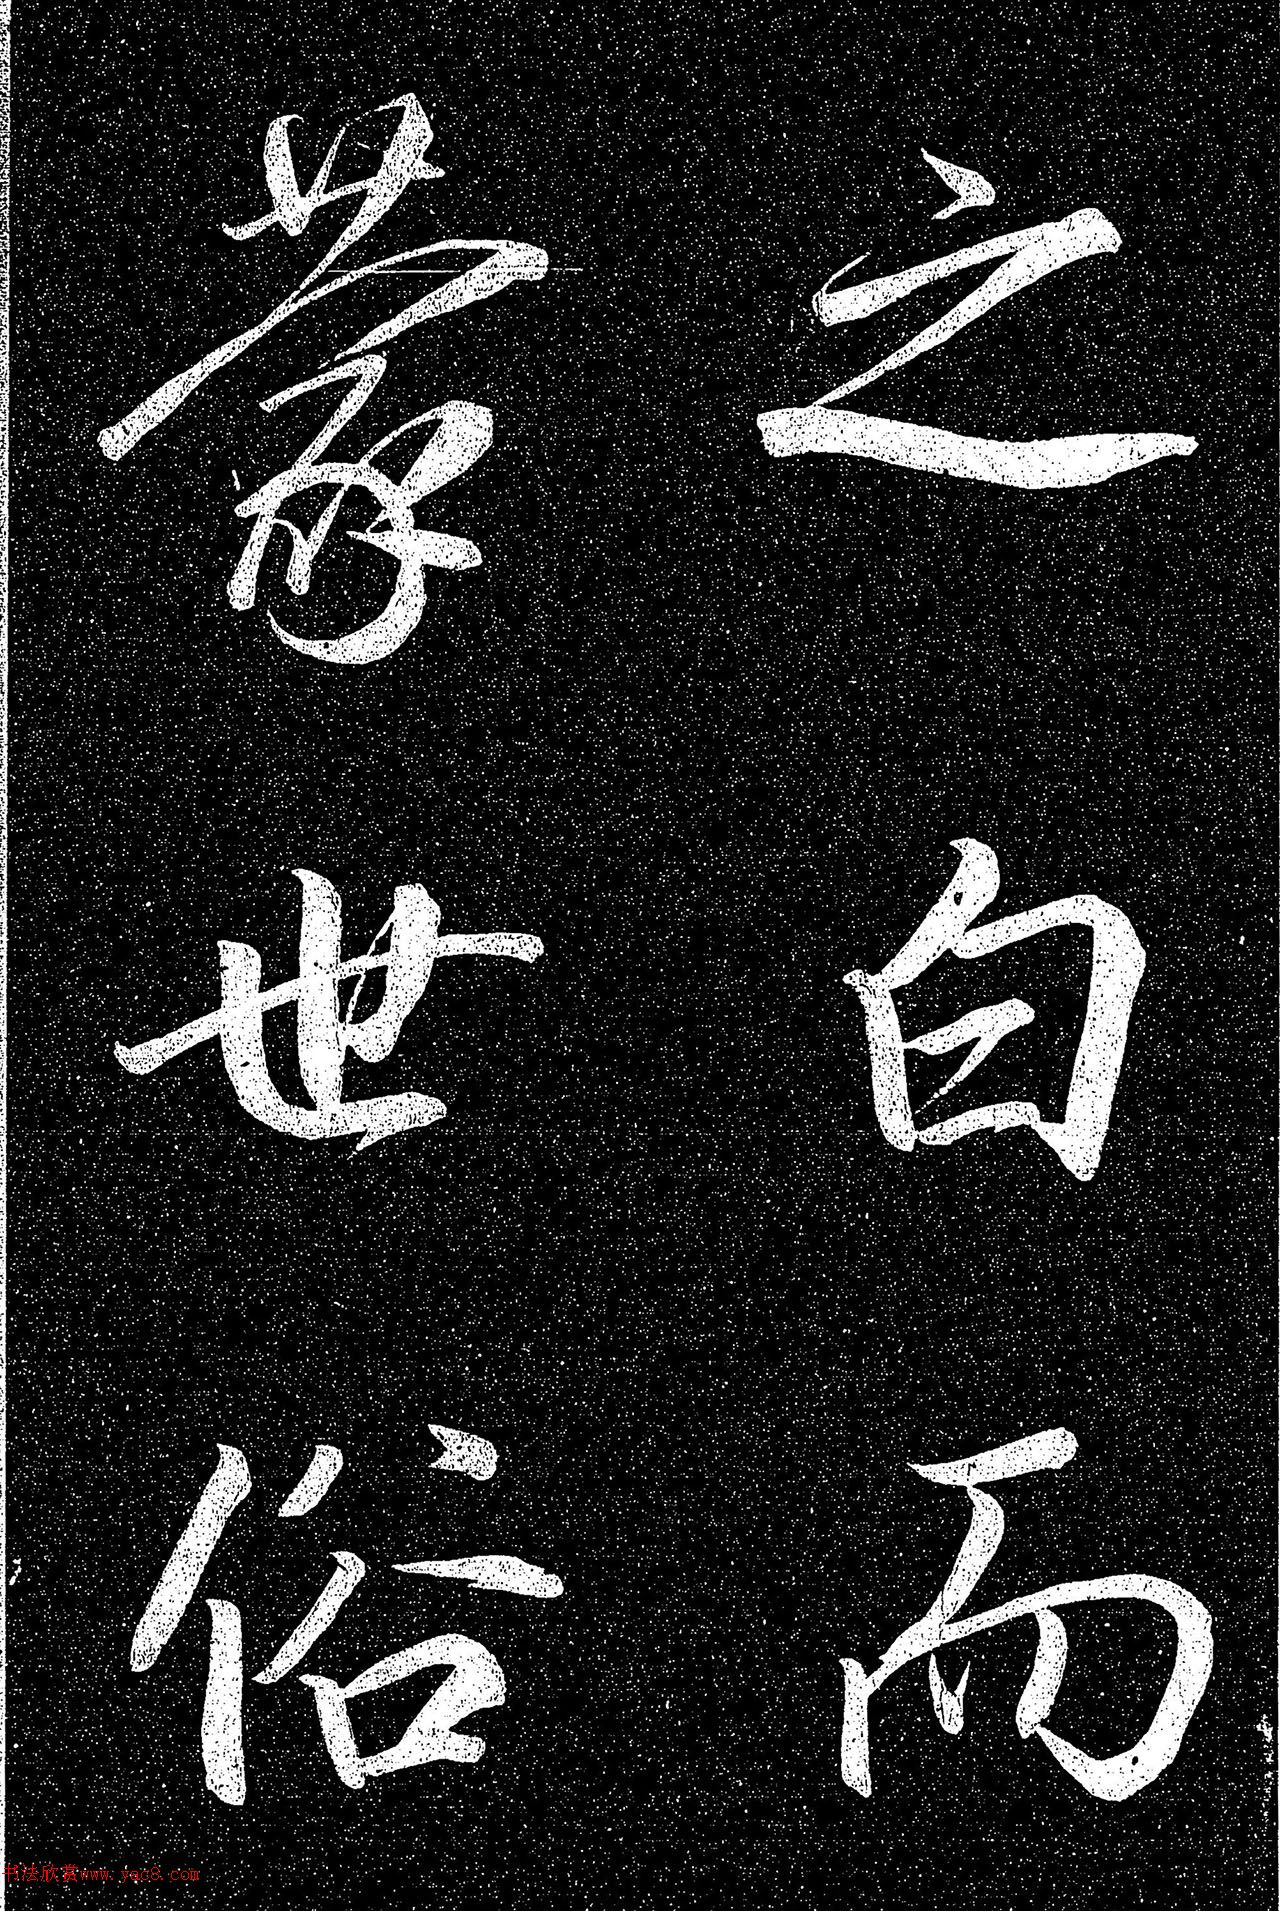 之白而
蒙世俗
书法欣赏www.yac8.com